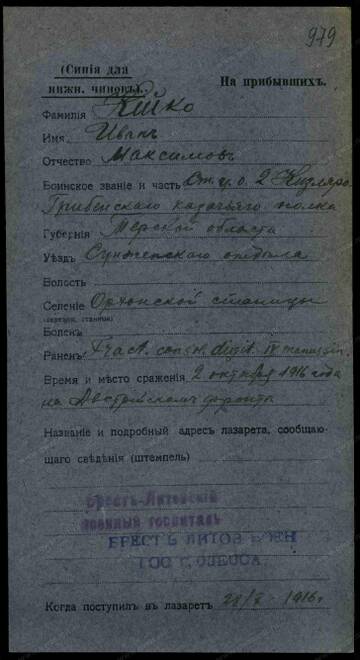 979
(Синія для
нижн. чиновъ).
На прибывшихъ.
Фамилія Кейко
Имя Иванъ
Отчество Максимовъ
Воинское званіе и часть 2 Кизляро
Гребенскаго казачьяго полка
Губернія Терской области
Уѣздъ Сунженскаго отдѣла
Волость
Селеніе Орхонской станицы
(городъ, станица)
Боленъ
Раненъ Fract. digit. IV manus sin.
Время и мѣсто сраженія 2 октября 1916 года
на Австрійскомъ фронтѣ
Названіе и подробный адресъ лазарета, сообщаю-
щаго свѣдѣнія (штемпель)
Брестъ-Литовскій
военный госпиталь
БРЕСТЪ ЛИТОВ ВОЕН
ГОС Г. ОДЕССА
Когда поступилъ въ лазаретъ 1916 г